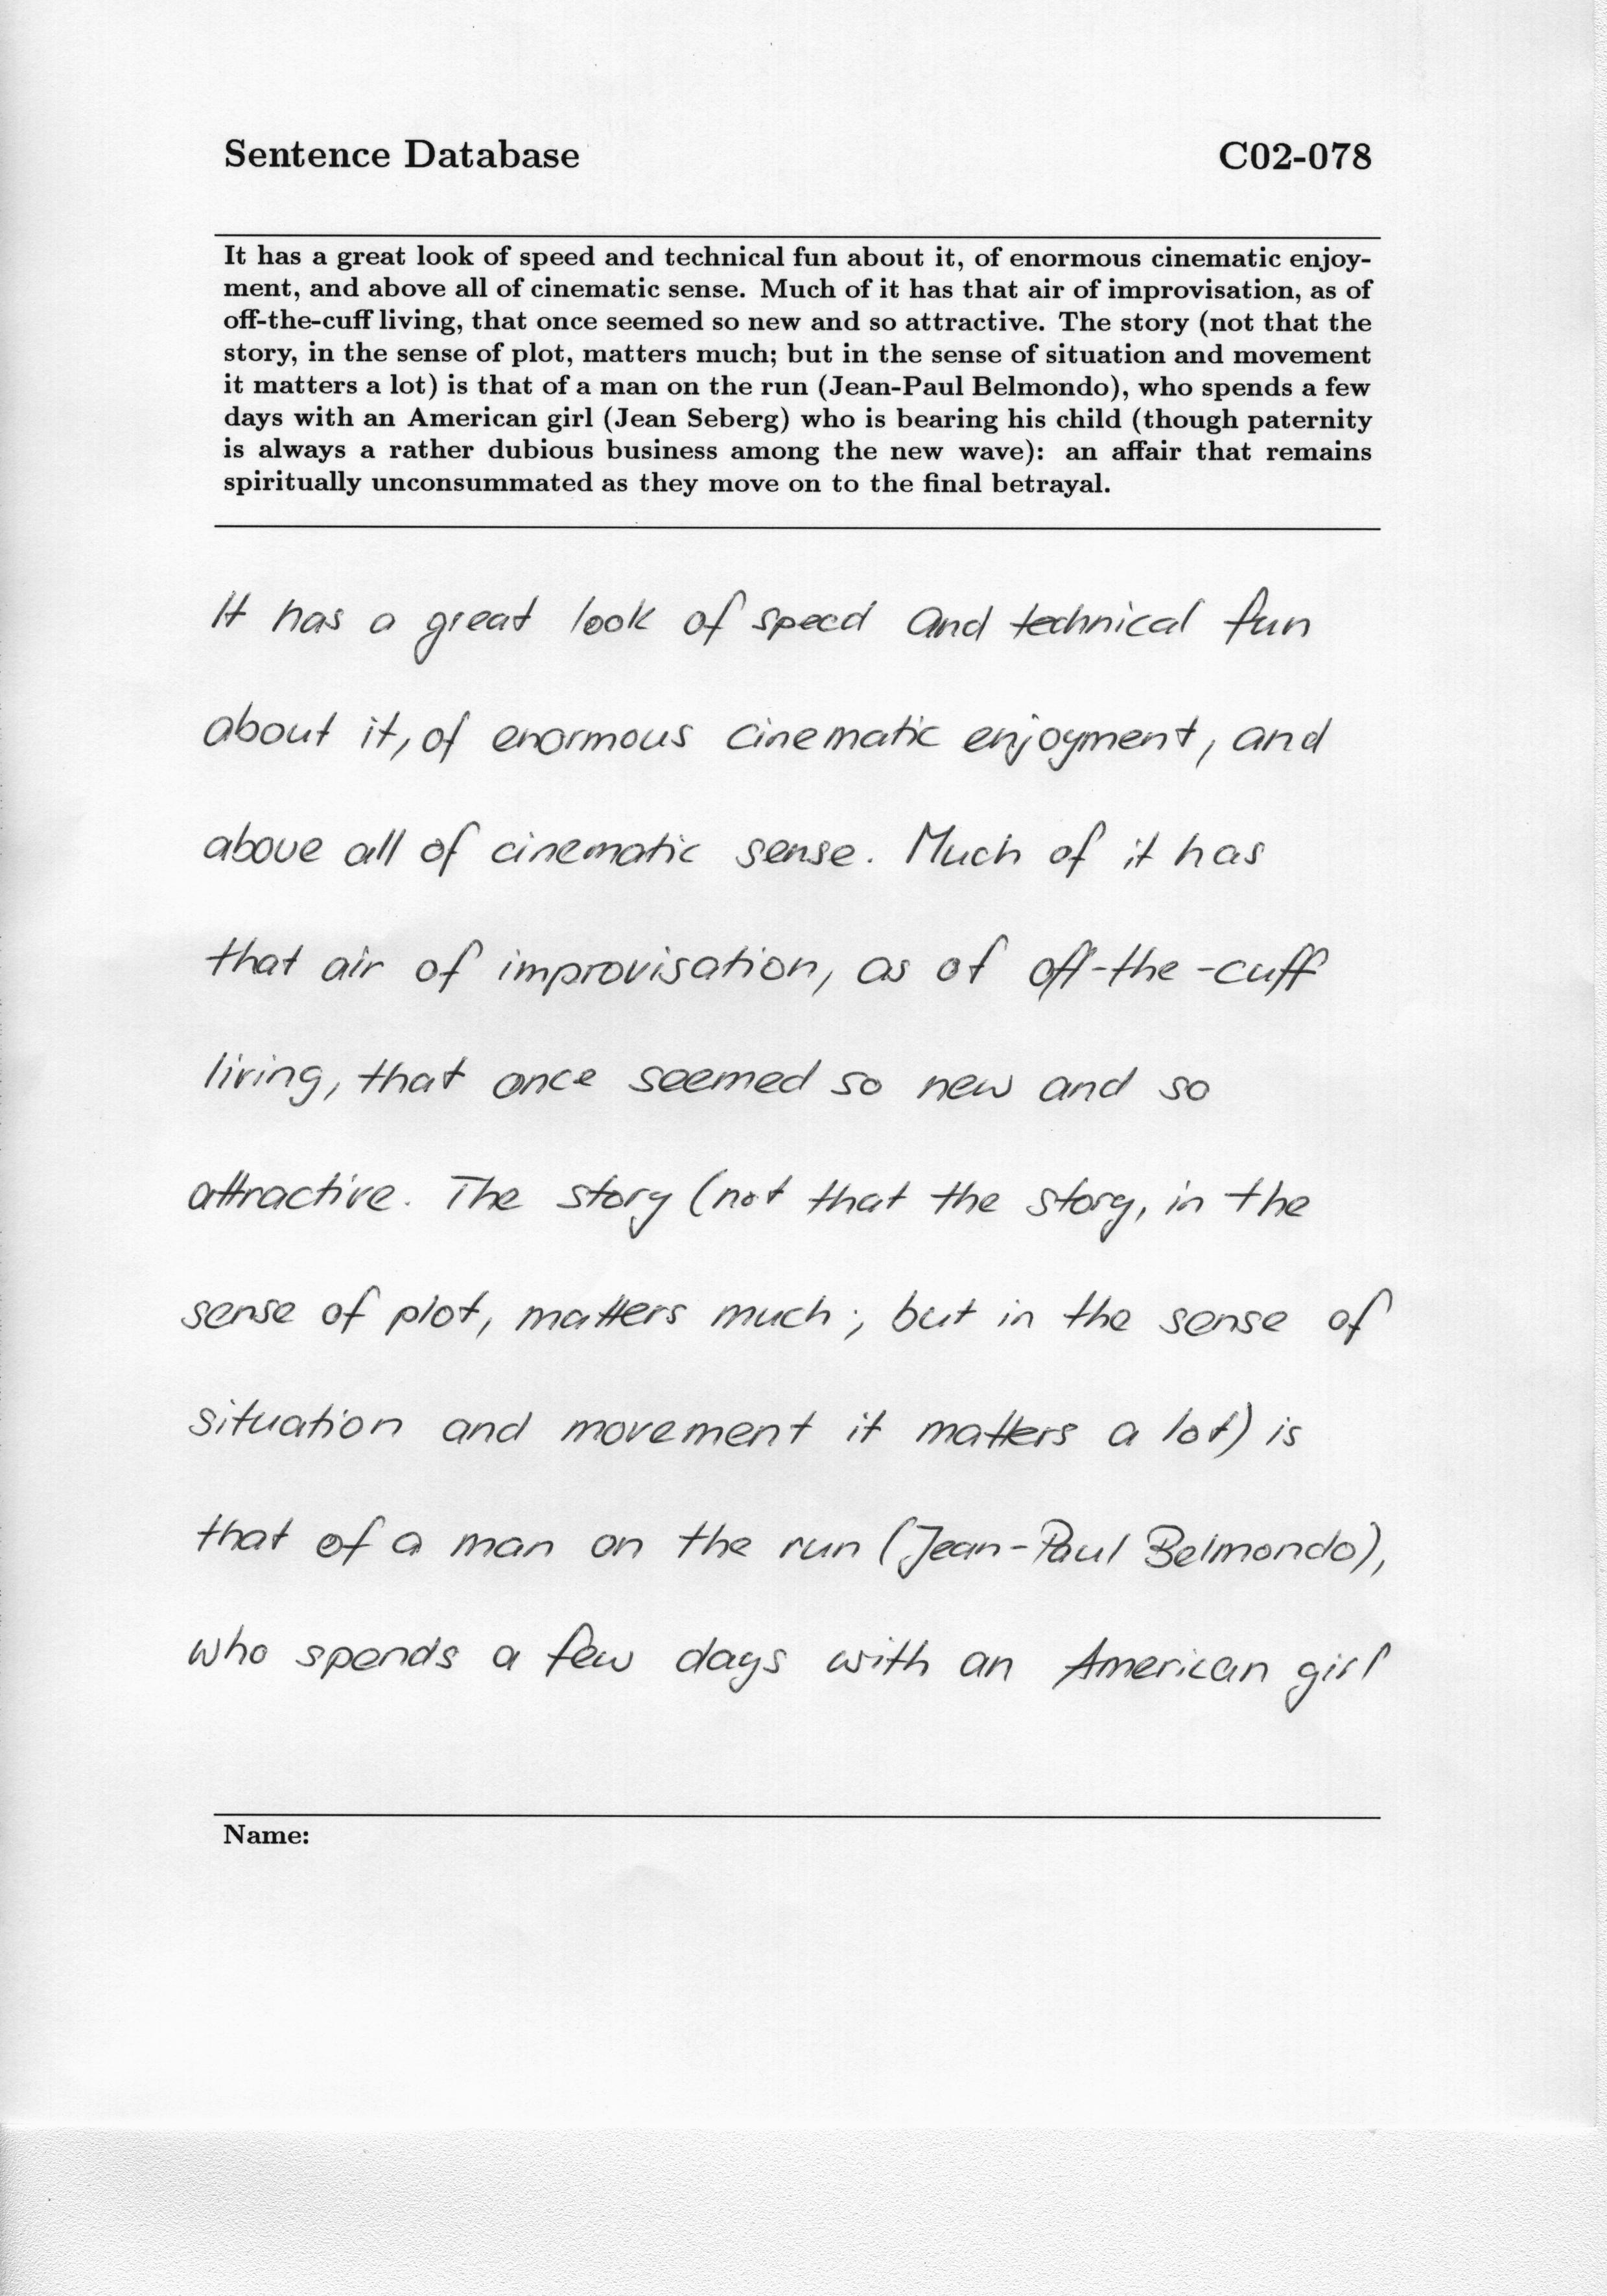 Sentence Database
C02-078
It has a great look of speed and technical fun about it, of enormous cinematic enjoy-
ment, and above all of cinematic sense. Much of it has that air of improvisation, as of
off-the-cuff living, that once seemed so new and so attractive. The story (not that the
story, in the sense of plot, matters much; but in the sense of situation and movement
it matters a lot) is that of a man on the run (Jean-Paul Belmondo), who spends a few
days with an American girl (Jean Seberg) who is bearing his child (though paternity
is always a rather dubious business among the new wave): an affair that remains
spiritually unconsummated as they move on to the final betrayal.
It has a great look of speed and technical fun
about it, of enormous cinematic enjoyment, and
above all of cinematic sense. Much of it has
that air of improvisation, as of off-the-cuff
living, that once seemed so new and so
attractive. The story (not that the story, in the
sense of plot, matters much; but in the sense of
situation and movement it matters a lot) is
that of a man on the run (Jean-Paul Belmondo),
who spends a few days with an American girl
Name: